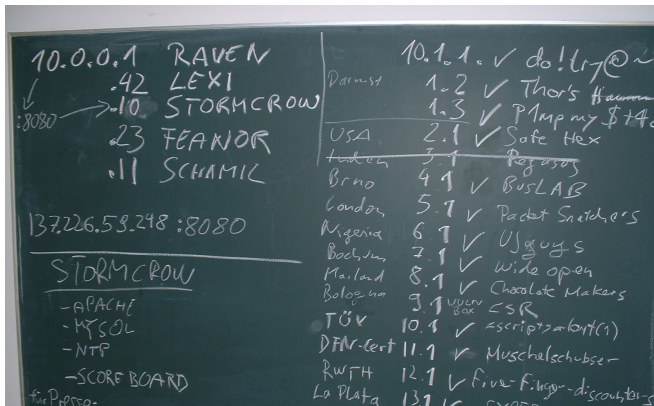 10.0.0.1 RAVEN
.42 LEXI
:8080 .10 STORMCROW
.23 FEANOR
.11 SCHAMIL
137.226.59.248 :8080
STORMCROW
-APACHE
-MYSQL
-NTP
-SCOREBOARD
für Presse-
10.1.1. ✓ do!try@~
Darmst 1.2 ✓ Thor's
1.3 ✓ P1mp my $+4
USA 2.1 ✓ Safe Hex
3.1 Pegasos
Brno 4.1 ✓ BusLAB
London 5.1 ✓ Packet Snatchers
Nigeria 6.1 ✓ Ujguys
Bochum 7.1 ✓ Wide open
Mailand 8.1 ✓ Chocolate Makers
Bologna 9.1 VULN BOX CSR
TÜV 10.1 ✓
DFN-Cert 11.1 ✓ Muschelschubser
RWTH 12.1 ✓ Five-Finger-discounters
La Plata 13.1 ✓